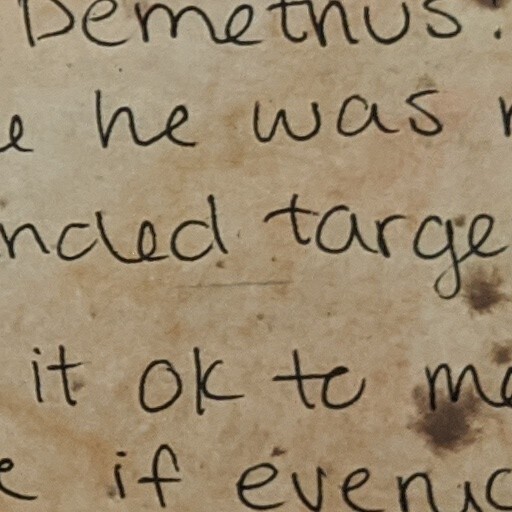 Demethus.
he was
nded targe
it ok to
if even